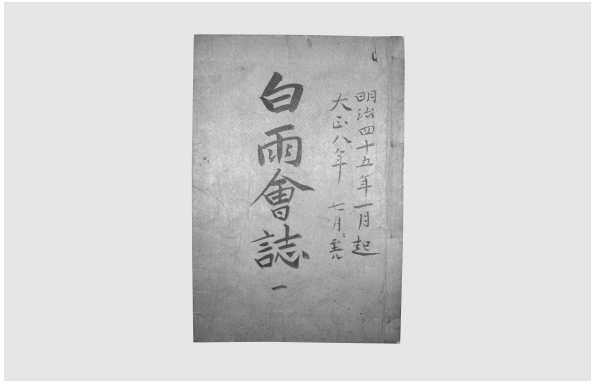 明治四十五年一月起
大正八年七月
白雨會誌
一